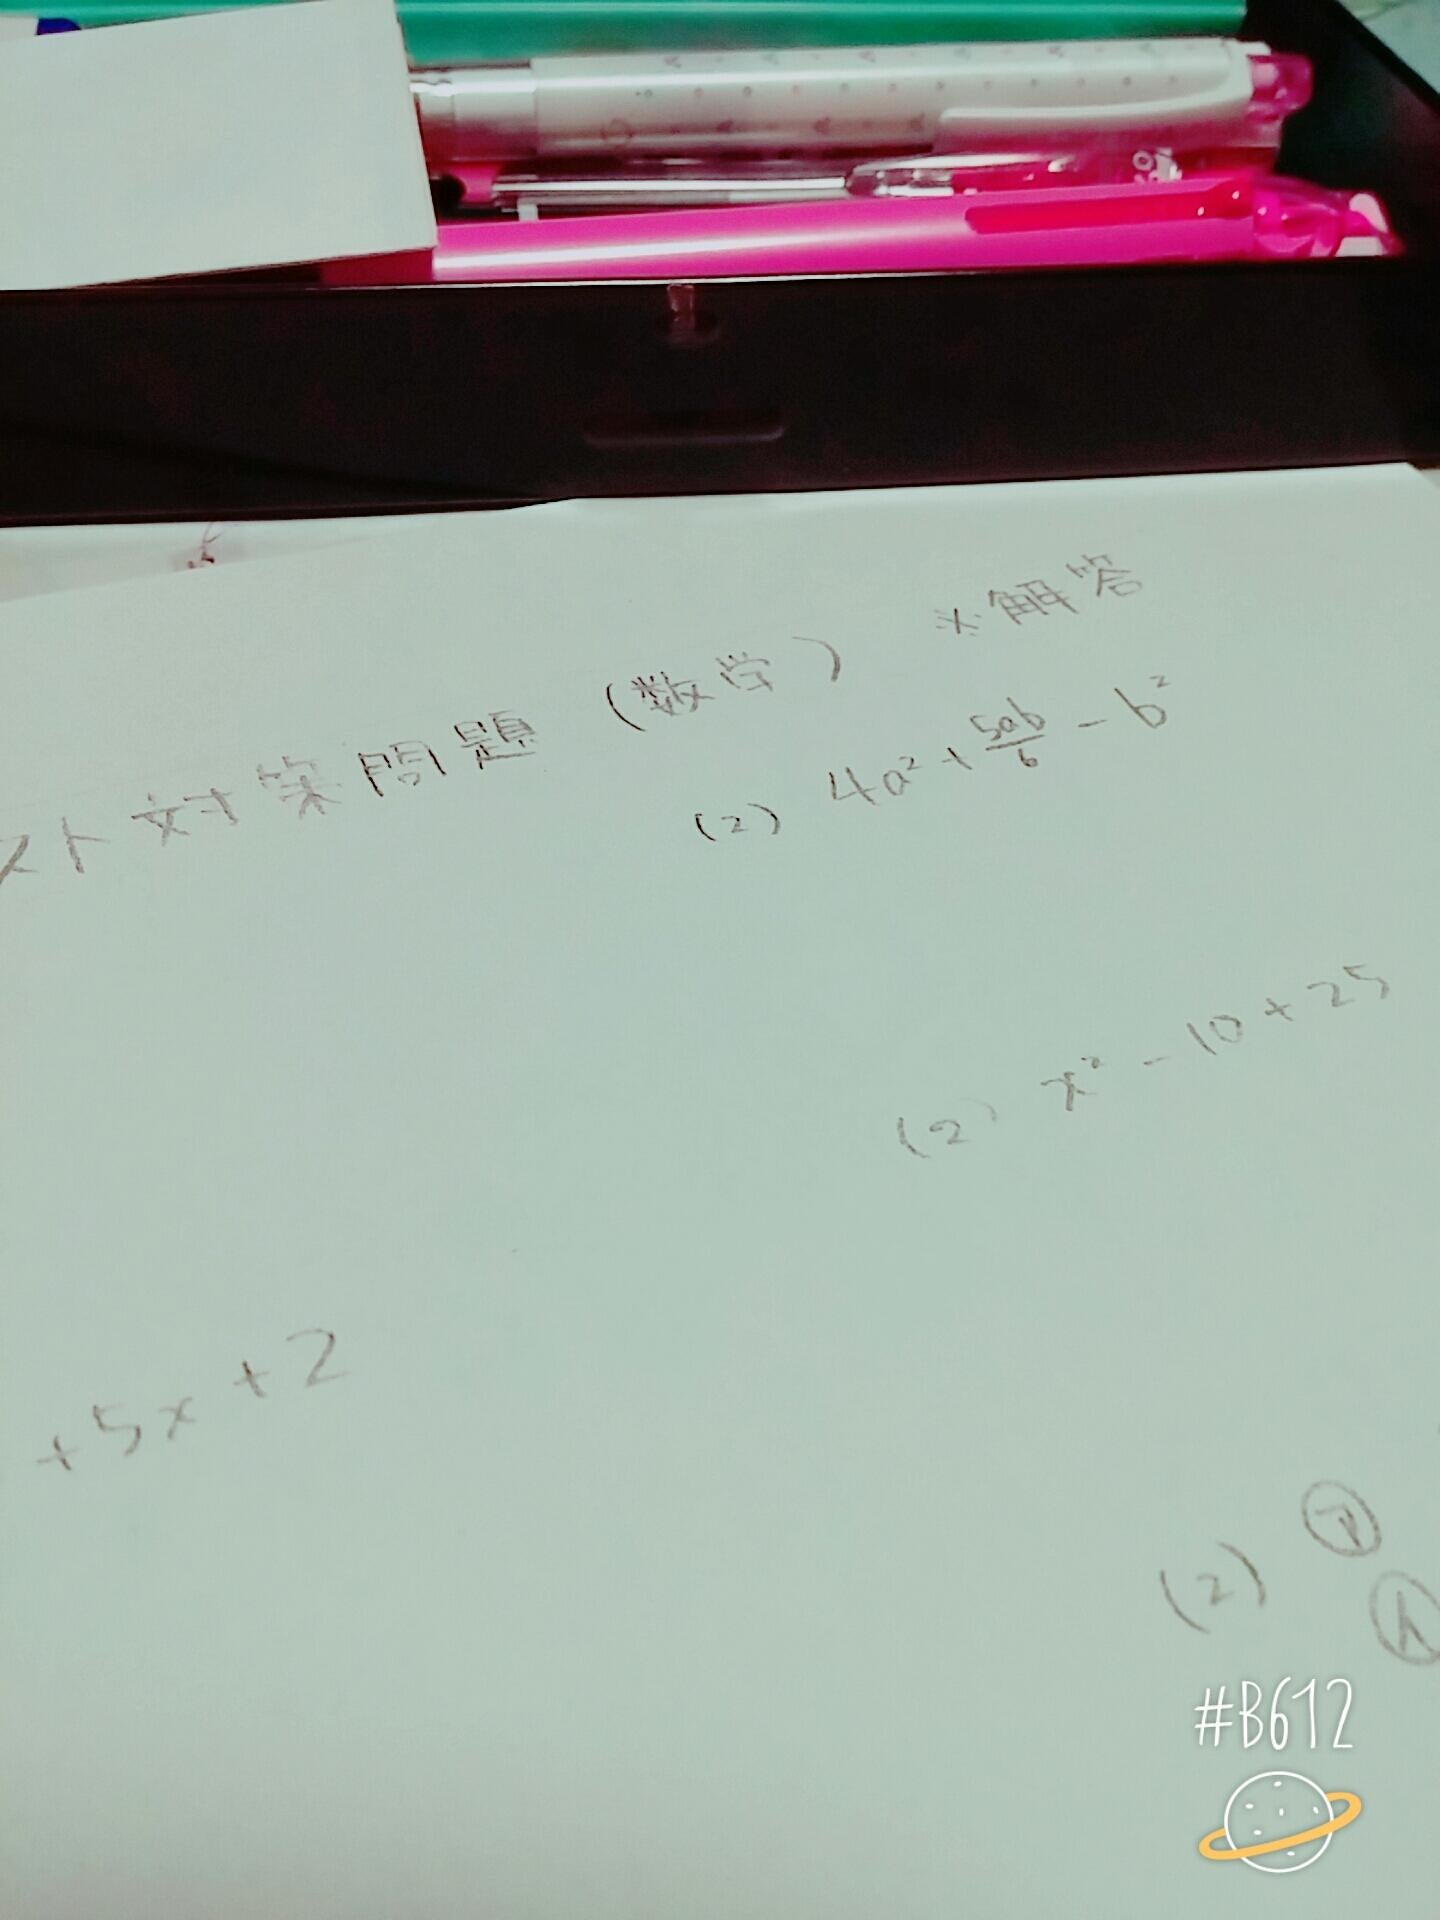 スト対策問題(数学) ※解答
(2) 4a² + 5ab/6 - b²
(2) x² - 10 + 25
+5x+2
(2) ア
イ
#B612